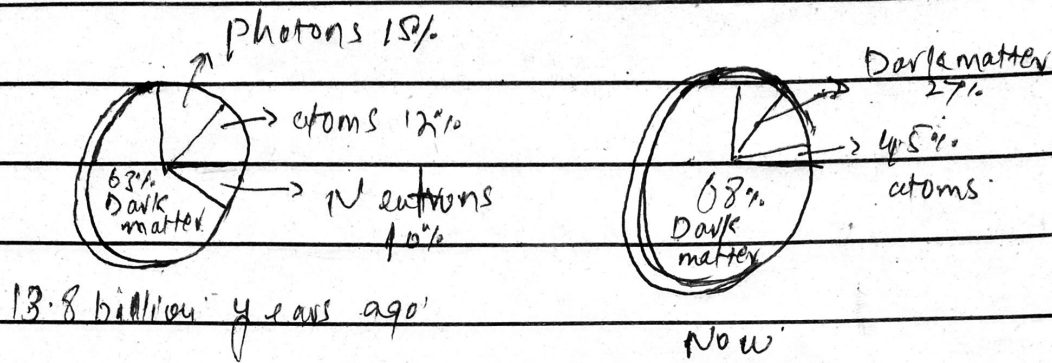 Photons 15%
atoms 12%
63%
Dark
matter
Neutrons
10%
13.8 billion years ago
Dark matter
27%
4.5%
atoms
68%
Dark
matter
Now